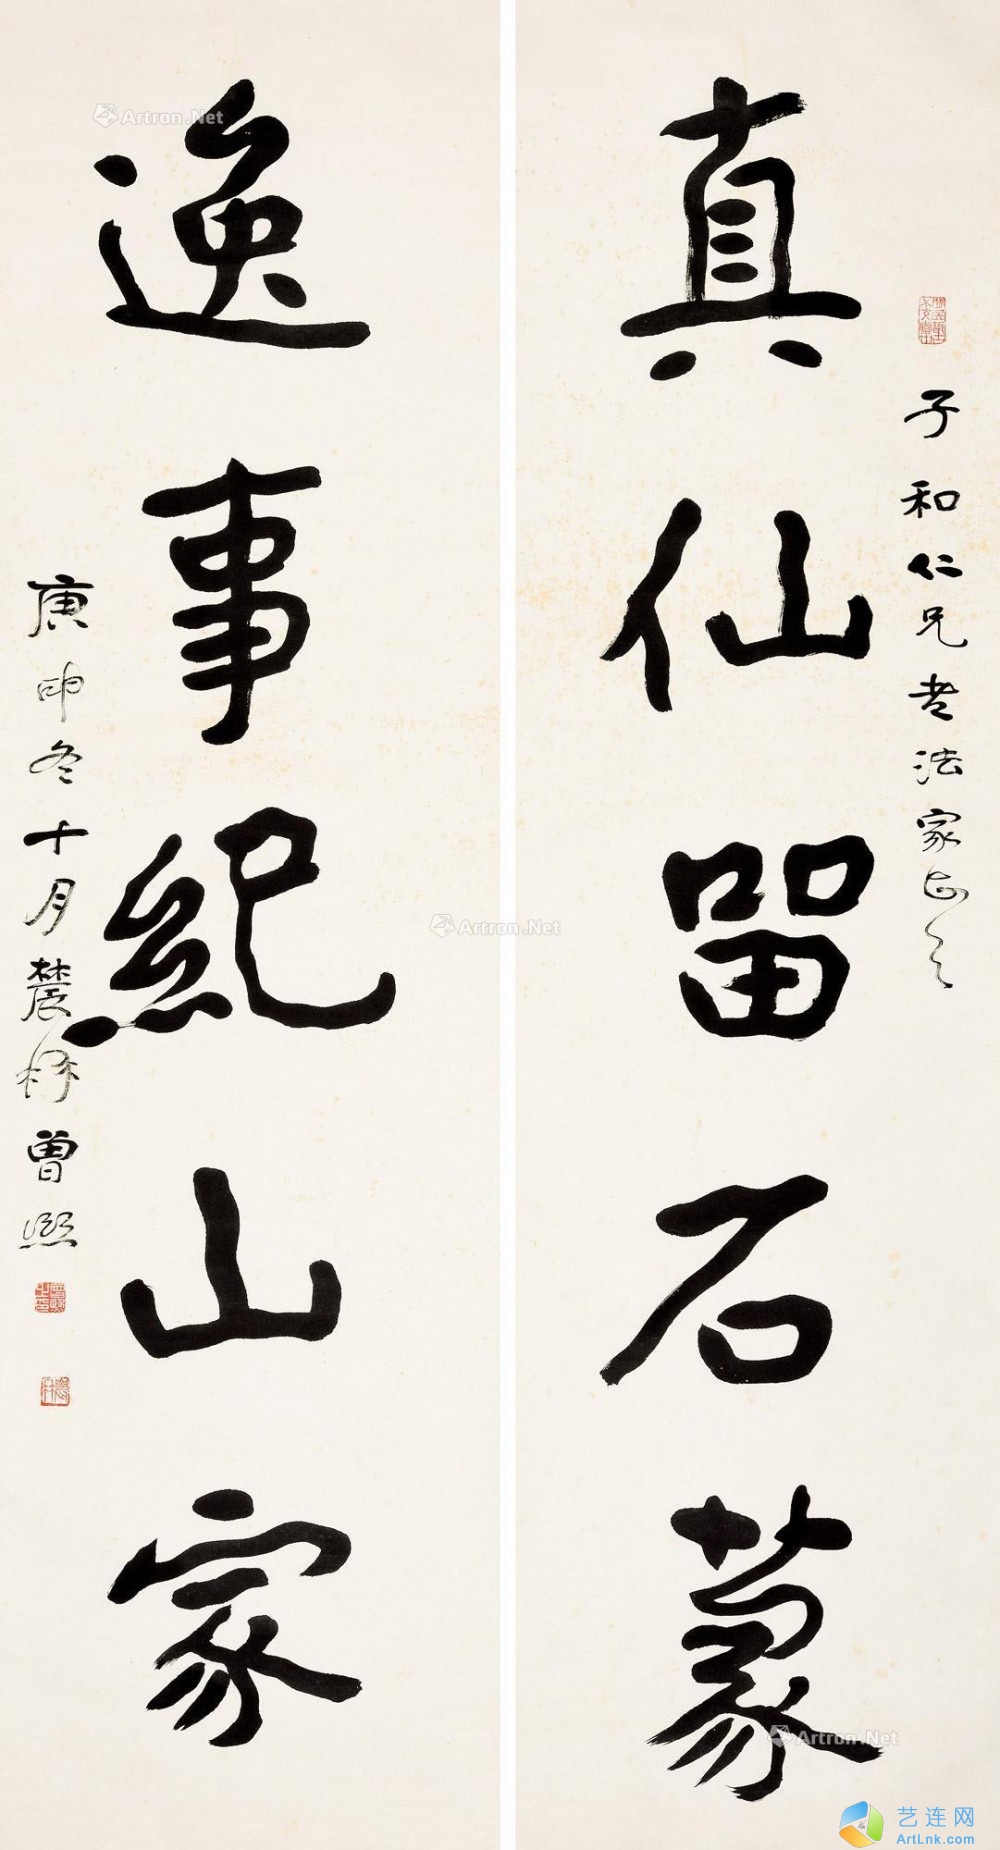 子和仁兄老法家正之
真仙留石篆
逸事紀山家
庚申冬十月農髯曾熙
Artron.Net
Artron.Net
Artron.Net
艺连网
ArtLnk.com